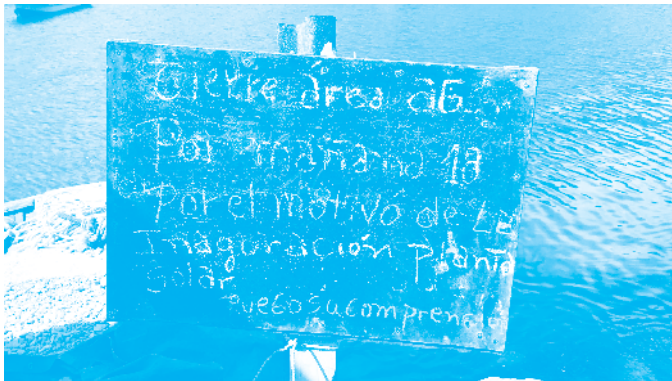 Cierre área
Por mañana 18
Por el motivo de La
Inaguración Planta
Solar
Ruego su comprención